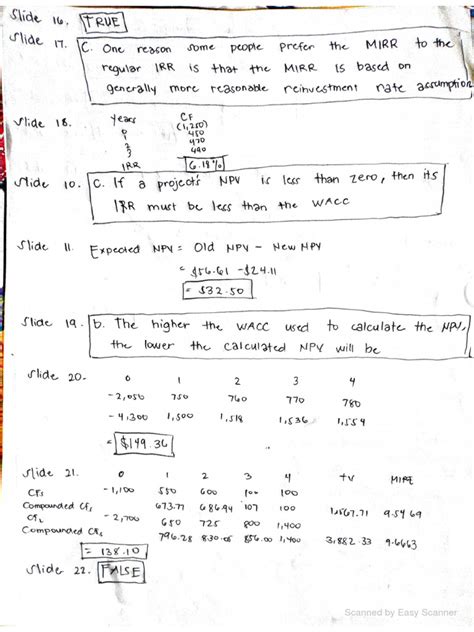 Slide 16. TRUE
Slide 17. C. One reason some people prefer the MIRR to the
regular IRR is that the MIRR is based on
generally more reasonable reinvestment rate assumption
Slide 18. Years CF
0 (1,250)
1 450
2 470
3 490
IRR 6.19%
Slide 10. C. If a project's NPV is less than zero, then its
IRR must be less than the WACC
Slide 11. Expected NPV = Old NPV - New NPV
= $56.61 - $24.11
= $32.50
Slide 19. b. The higher the WACC used to calculate the NPV,
the lower the calculated NPV will be
Slide 20. 0 1 2 3 4
-2,050 750 760 770 780
-4,300 1,500 1,518 1,536 1,554
= $149.36
Slide 21. 0 1 2 3 4 TV MIRR
CFs -1,100 550 600 100 100
Compounded CFs 673.77 686.94 107 100 1,567.71 9.5469
CFL -2,700 650 725 800 1,400
Compounded CFL 796.28 830.05 856.00 1,400 3,882.33 9.5063
= 138.10
Slide 22. FALSE
Scanned by Easy Scanner